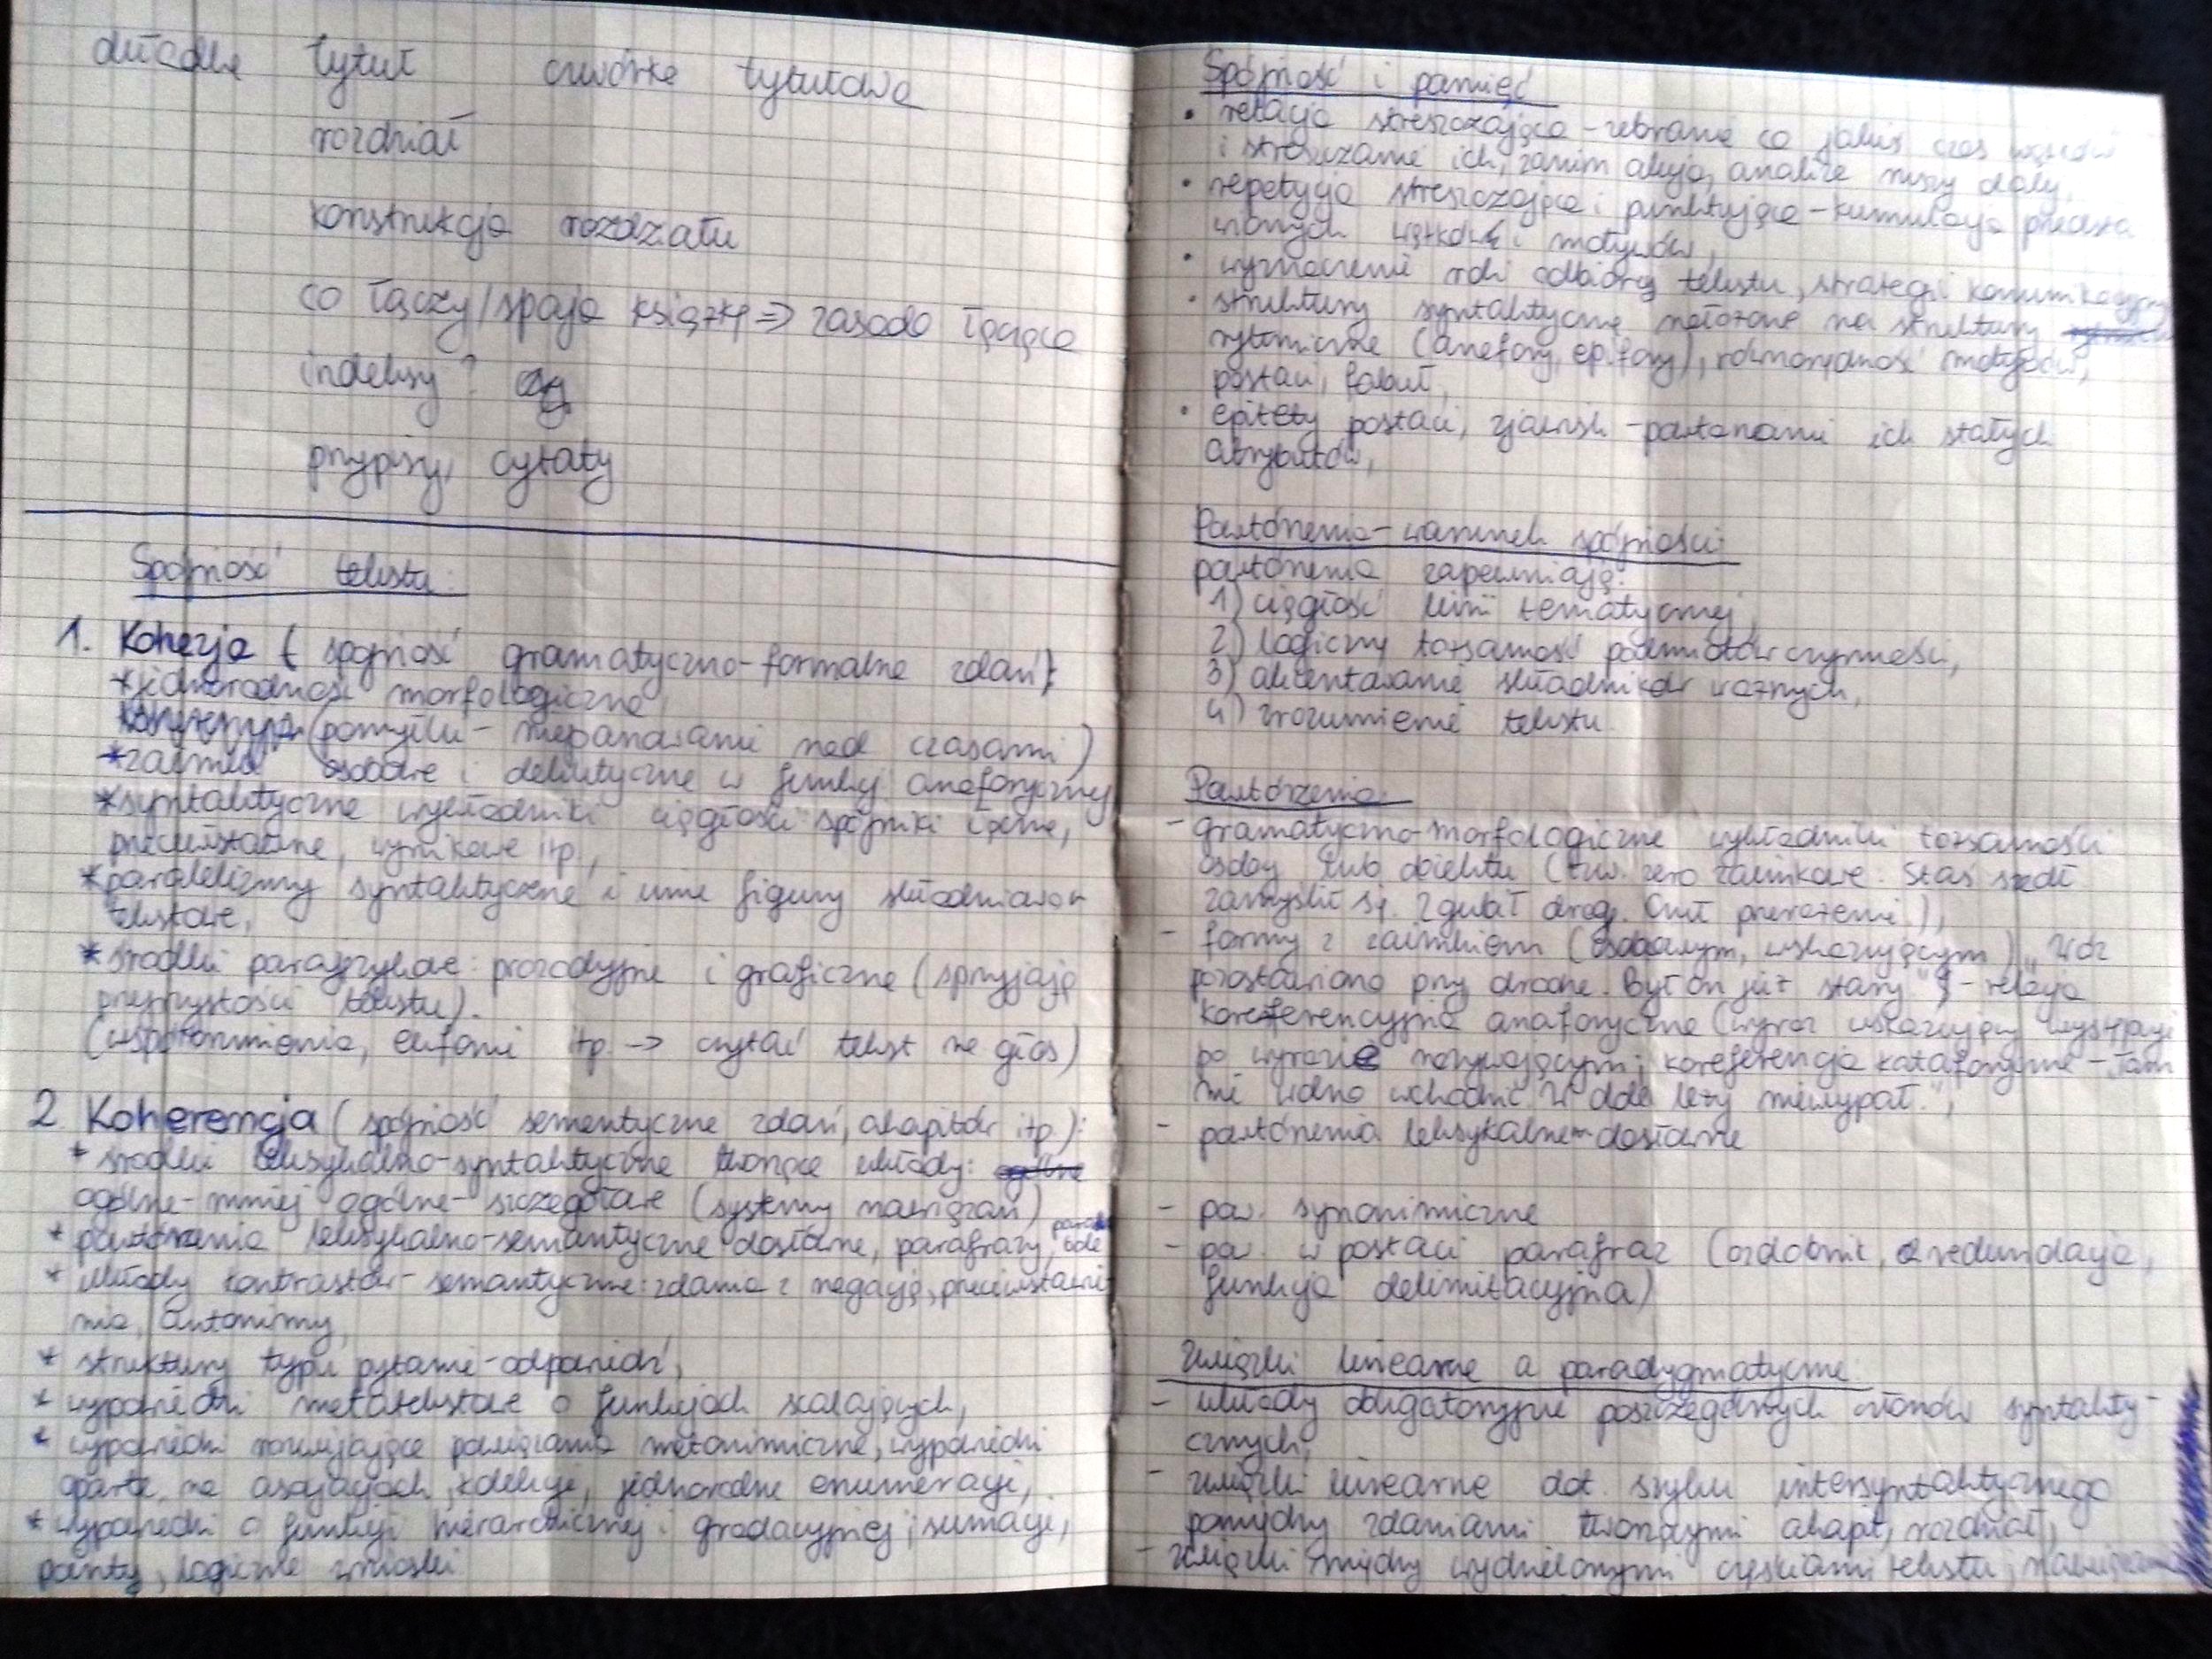 okładka tytuł czwórka tytułowa
rozdział
konstrukcja rozdziału
co łączy/spaja książkę => zasada łącząca
indeksy?
przypisy, cytaty
Spójność tekstu:
1. Kohezja (spójność gramatyczno-formalna zdań):
*jednorodność morfologiczna,
(pomyłki - niepanowanie nad czasami)
*zaimki osobowe i deiktyczne w funkcji anaforycznej
*syntaktyczne wykładniki ciągłości: spójniki łączne,
przeciwstawne, wynikowe itp.,
*paralelizmy syntaktyczne i inne figury składniowo-
tekstowe,
*środki parajęzykowe: prozodyjne i graficzne (sprzyjają
przejrzystości tekstu).
(współbrzmienia, eufonie itp. -> czytać tekst na głos)
2. Koherencja (spójność semantyczna zdań, akapitów itp.):
* środki leksykalno-syntaktyczne tworzące układy:
ogólne-mniej ogólne-szczegółowe (systemy nawiązań)
* powtórzenia leksykalno-semantyczne dosłowne, parafrazy,
* układy kontrastów-semantyczne: zdania z negacją, przeciwstawie
nia, antonimy,
* struktury typu pytanie-odpowiedź,
* wypowiedzi metatekstowe o funkcjach scalających,
* wypowiedzi rozwijające powiązania metonimiczne, wypowiedzi
oparte na asocjacjach, kolekcje, jednorodne enumeracje,
* wypowiedzi o funkcji hierarchicznej i gradacyjnej; sumacje,
pointy, logiczne wnioski
Spójność i pamięć
• relacja streszczająca-zebranie co jakiś czas wątków
i streszczanie ich, zanim akcja, analiza ruszy dalej,
• repetycja streszczająca i punktująca-kumulacja przedsta
wionych wątków i motywów,
• wyznaczenie roli odbiorcy tekstu, strategii komunikacyjnej
• struktury syntaktyczne nałożone na struktury
rytmiczne (anafory, epifory), równorzędność motywów,
postaci, fabuł,
• epitety postaci, zjawisk-powtarzanie ich stałych
atrybutów,
Powtórzenia-warunek spójności:
powtórzenia zapewniają:
1) ciągłość linii tematycznej,
2) logiczną tożsamość podmiotów czynności,
3) akcentowanie składników ważnych,
4) zrozumienie tekstu.
Powtórzenia:
- gramatyczno-morfologiczne wykładniki tożsamości
osoby lub obiektu (tzw. zero zaimkowe: Staś szedł
zamyślił się. Zgubił drogę. Czuł przerażenie.),
- formy z zaimkiem (osobowym, wskazującym) „Wóz
pozostawiono przy drodze. Był on już stary." - relacja
koreferencyjna anaforyczna (wyraz wskazujący występuje
po wyrazie nazywającym; koreferencja kataforyczna - „Tam
nie wolno wchodzić. W dole leży niewypał.",
- powtórzenia leksykalne-dosłowne
- pow. synonimiczne
- pow. w postaci parafraz (ozdobnik, redundacja,
funkcja delimitacyjna)
Związki linearne a paradygmatyczne:
- układy obligatoryjne poszczególnych członów syntakty-
cznych,
- związki linearne dot. szyku intersyntaktycznego
pomiędzy zdaniami tworzącymi akapit, rozdział,
- związki między wydzielonymi częściami tekstu;